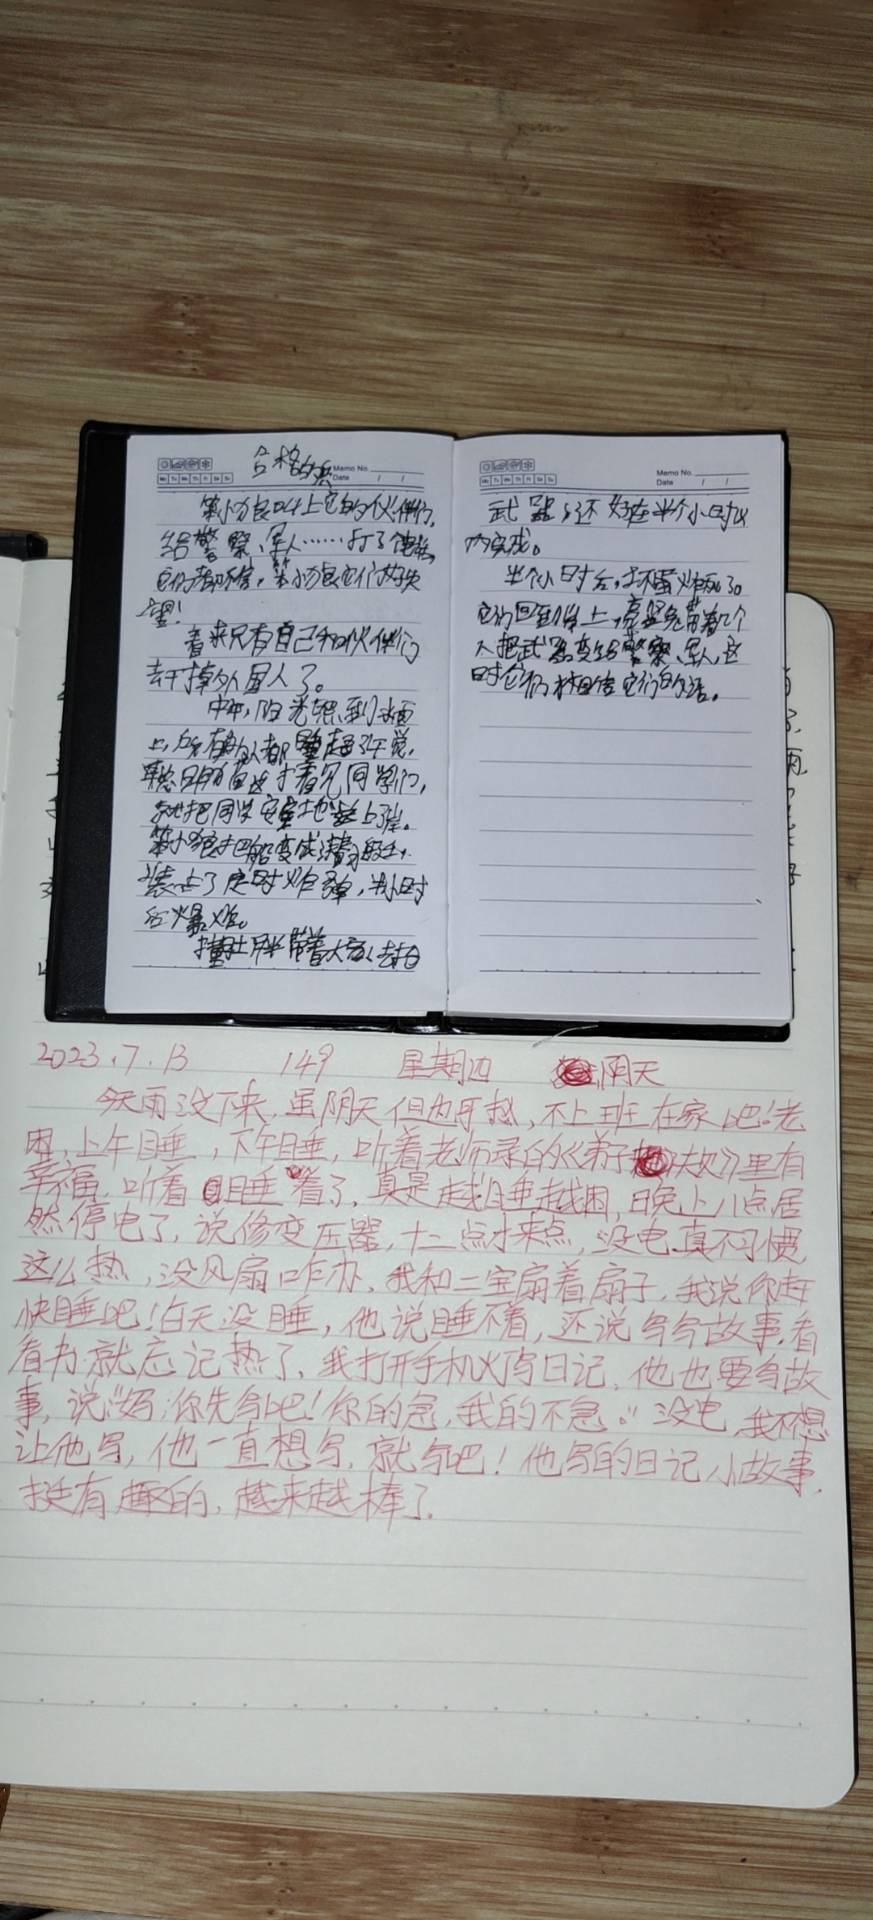 合格的兵
Memo No.
Date / /
Mo Tu We Th Fr Sa Su
笨小狼叫上它的伙伴们,
给警察、军人……打了电话,
它们都不信,笨小狼它们好失
望!
看来只有自己和伙伴们
去干掉外星人了。
中午,阳光照到水面
上,所有的人都睡起了午觉,
把同学安全地
笨小狼把船变成潜
装上了定时炸弹,半小时
后爆炸。
带着大家去
Memo No.
Date / /
Mo Tu We Th Fr Sa Su
武器,还好在半个小时以
内完成。
半个小时后,
它们回到岸上,带着几个
人把武器交给警察、军人,这
时它们才相信它们的话。
2023.7.13 149 星期四 阴天
今天雨没下来,虽阴天但也开热,不上班在家吧!老
困,上午睡,下午睡,听着老师录的《弟子规》里有
幸福,听着睡着了,真是越睡越困,晚上八点居
然停电了,说修变压器,十二点才来点,没电真不习惯,
这么热,没风扇咋办,我和二宝扇着扇子,我说你赶
快睡吧!白天没睡,他说睡不着,还说写写故事,看
看书就忘记热了,我打开手机灯写日记,他也要写故
事,说:“妈,你先写吧!你的急,我的不急。”没电,我不想
让他写,他一直想写,就写吧!他写的日记小故事,
挺有趣的,越来越棒了.